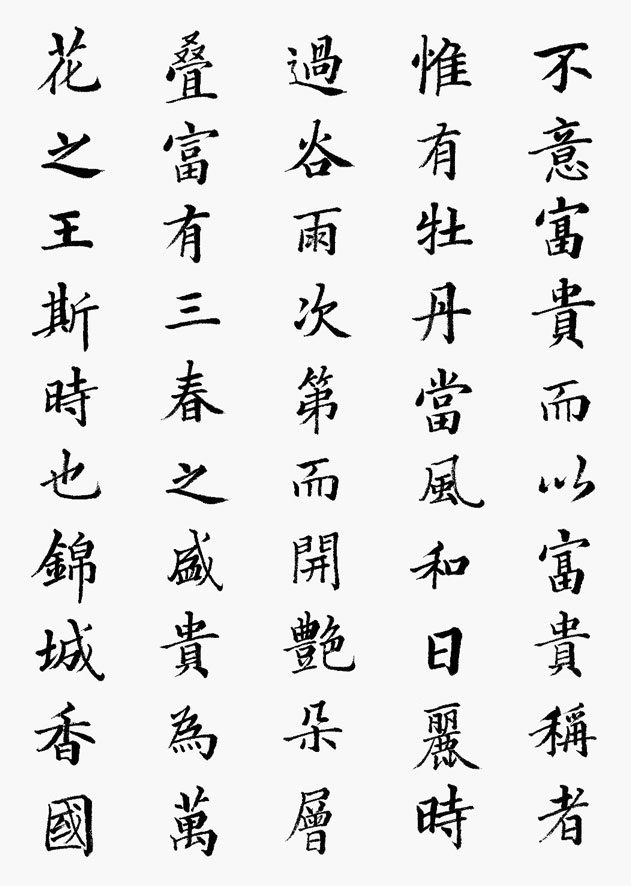 不意富貴而以富貴稱者
惟有牡丹當風和日麗時
過谷雨次第而開艷朵層
叠富有三春之盛貴為萬
花之王斯時也錦城香國